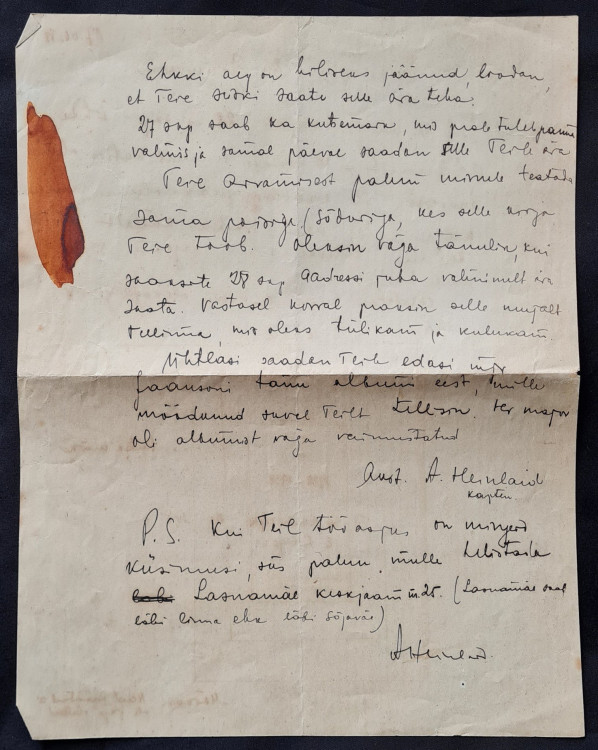 Ehkki aeg on hiliseks jäänud, loodan,
et Teie siiski saate selle ära teha.
27 sep saab ka kutsemara, mis peale tuleb panna
valmis ja samal päeval saadan selle Teile ära
Teie arvamisest palun minule teatada
sama (Sõduriga, kes selle kirja
Teie toob. Oleksin väga tänulik, kui
saaksite 28 sep aadressi juba valmimult ära
saata. Vastasel korral peaksin selle mujalt
tellima, mis oleks tülikam ja kulukam.
Ühtlasi saadan Teile edasi mjr
tänu albumi eest, mille
möödunud suvel Teilt tellisin. Hr major
oli albumist väga vaimustatud
Aust. A. Heinlaid
kapten.
P.S. Kui Teil töö asjus on mingeid
küsimusi, siis palun mulle helistada
Lasnamäe keskjaam (Lasnamäe saab
läbi linna ehk läbi Sõjaväe)
AHeinlaid.